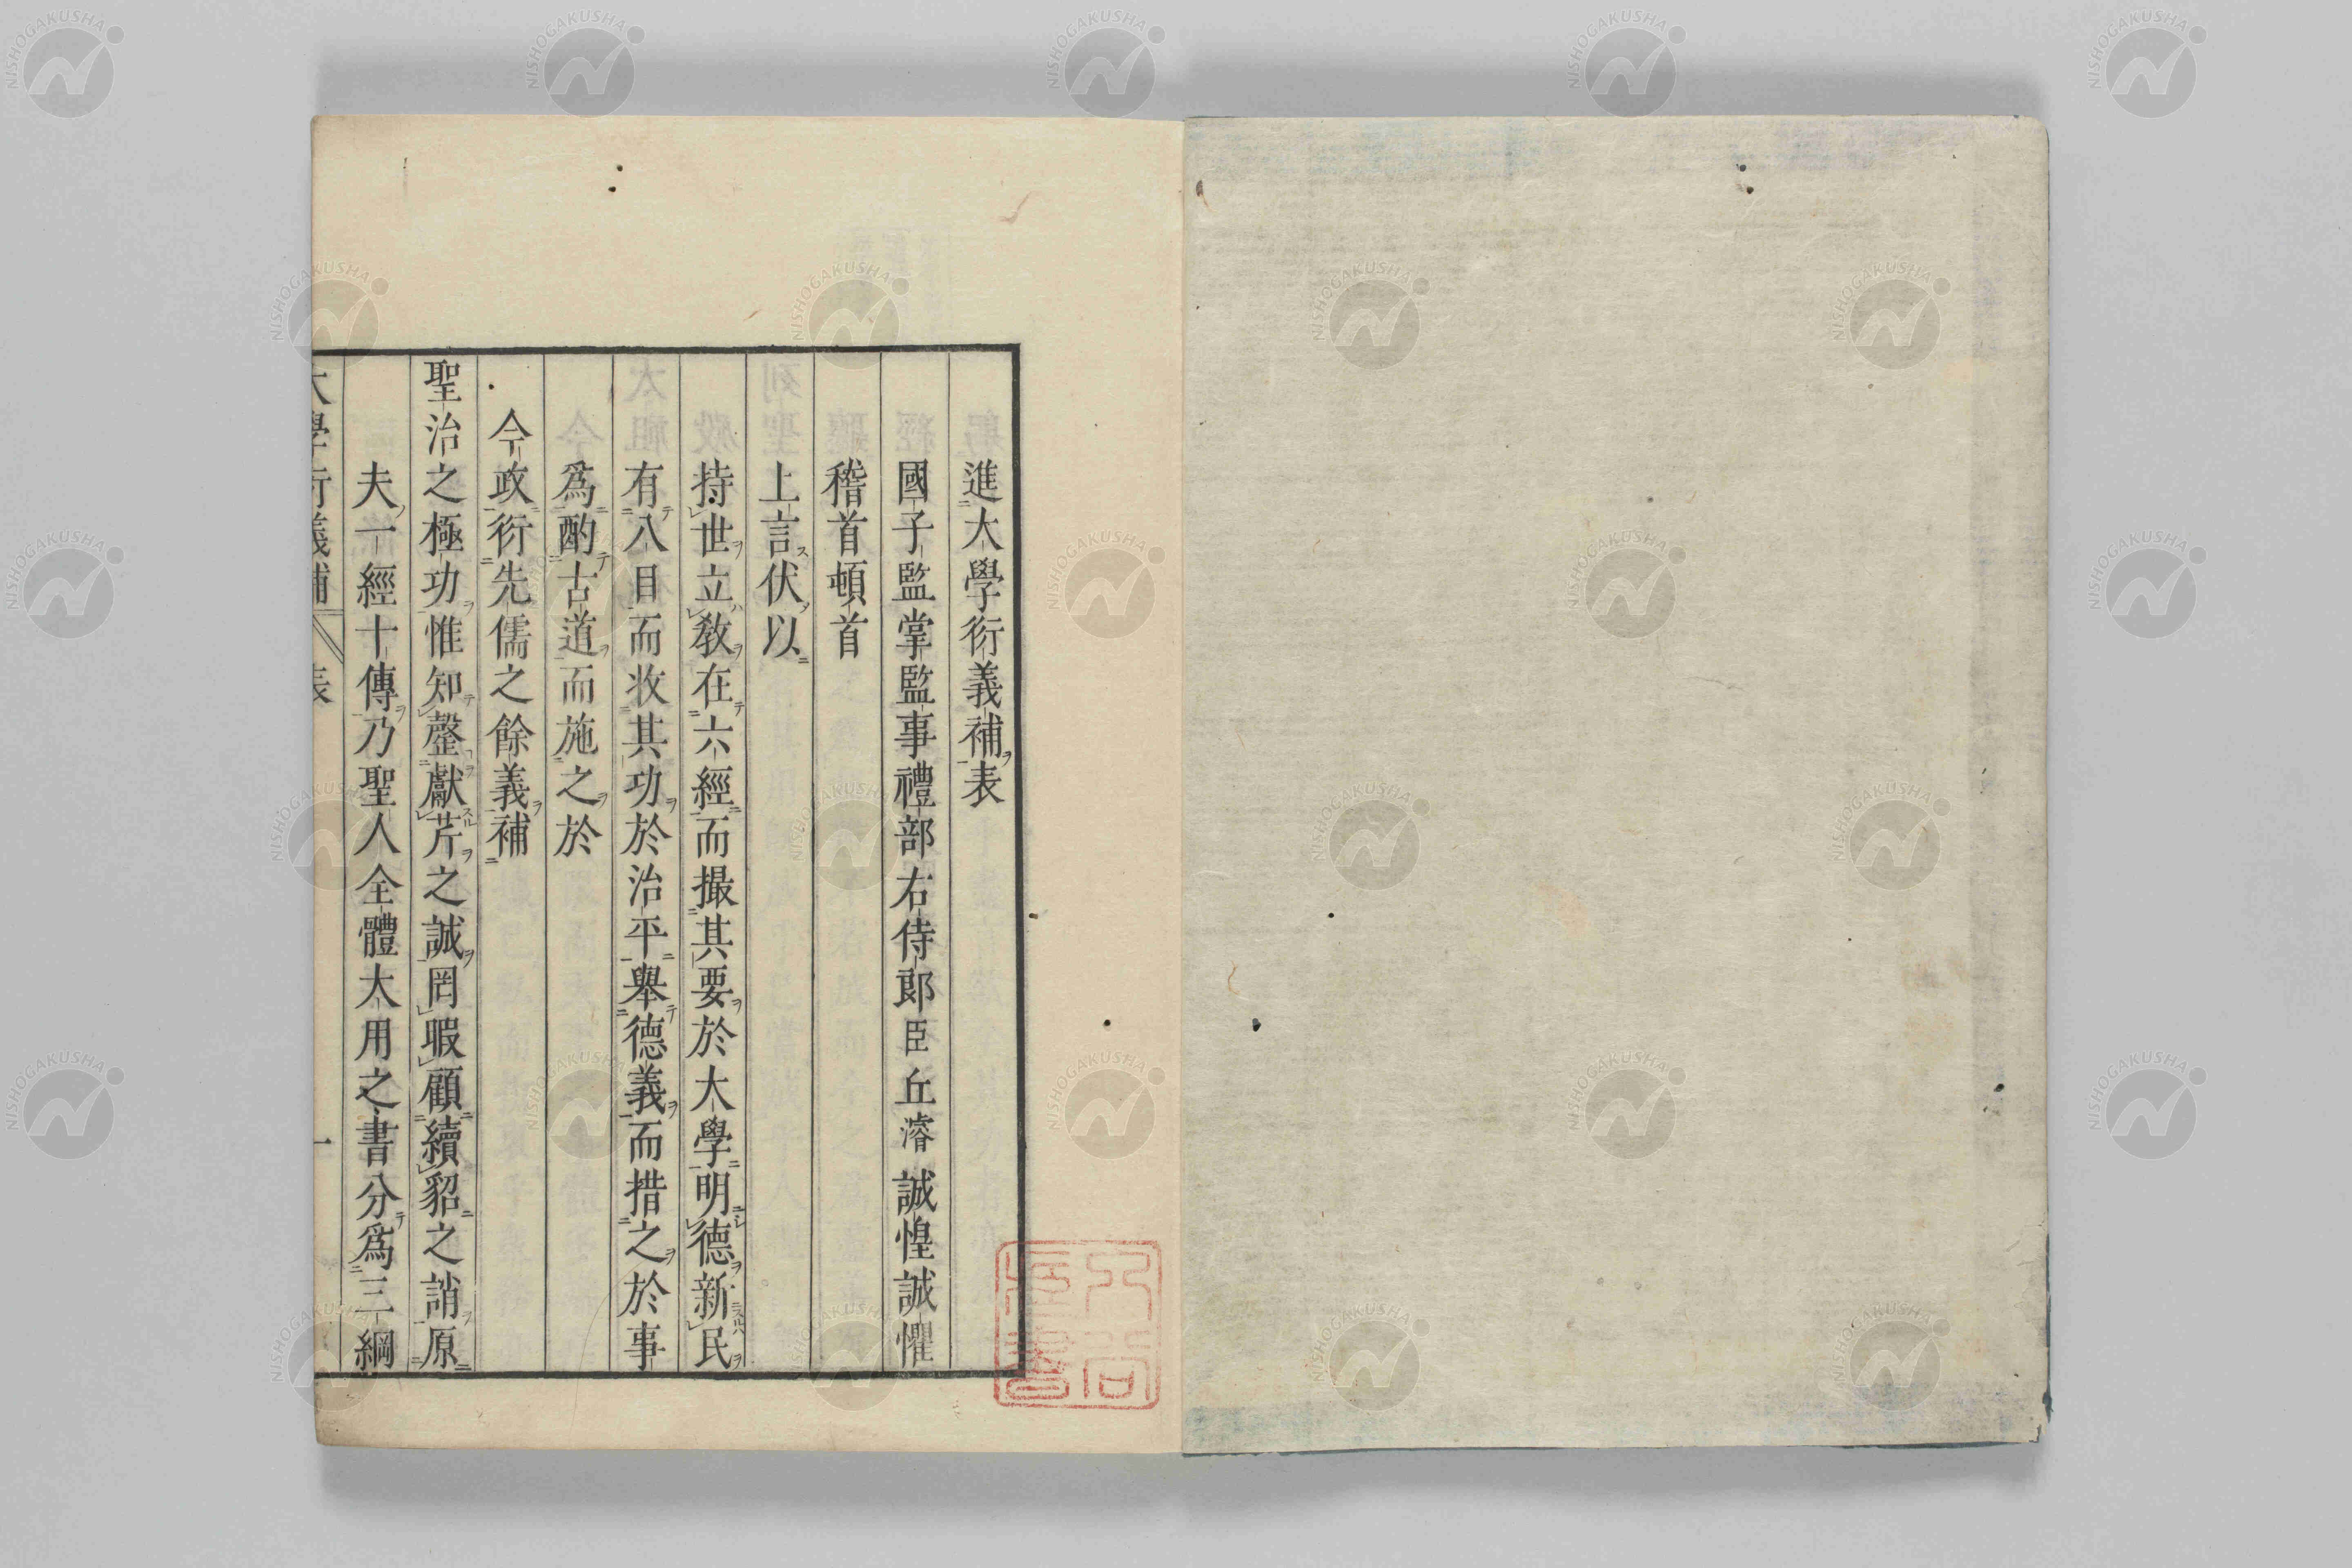 進大學衍義補表
國子監掌監事禮部右侍郎臣丘濬誠惶誠懼
稽首頓首
上言伏以
持世立敎在六經而撮其要於大學明德新民
有八目而收其功於治平舉德義而措之於事
爲酌古道而施之於
今政衍先儒之餘義補
聖治之極功惟知罄獻芹之誠罔暇顧續貂之誚原
夫一經十傳乃聖人全體大用之書分爲三綱
大學衍義補 表 一
NISHOGAKUSHA